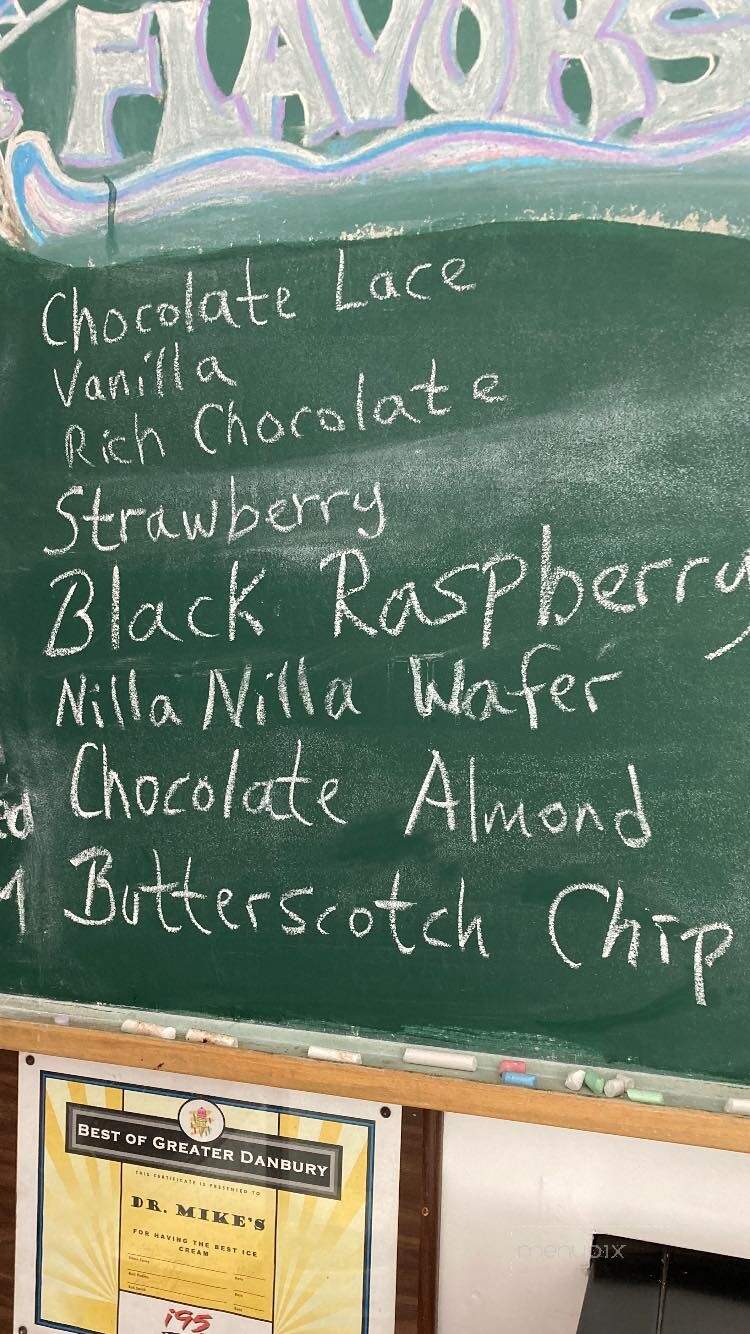 FLAVORS
Chocolate Lace
Vanilla
Rich Chocolate
Strawberry
Black Raspberry
Nilla Nilla Wafer
Chocolate Almond
Butterscotch Chip
BEST OF GREATER DANBURY
THIS CERTIFICATE IS PRESENTED TO
DR. MIKE'S
FOR HAVING THE BEST ICE
CREAM
i95
menupix